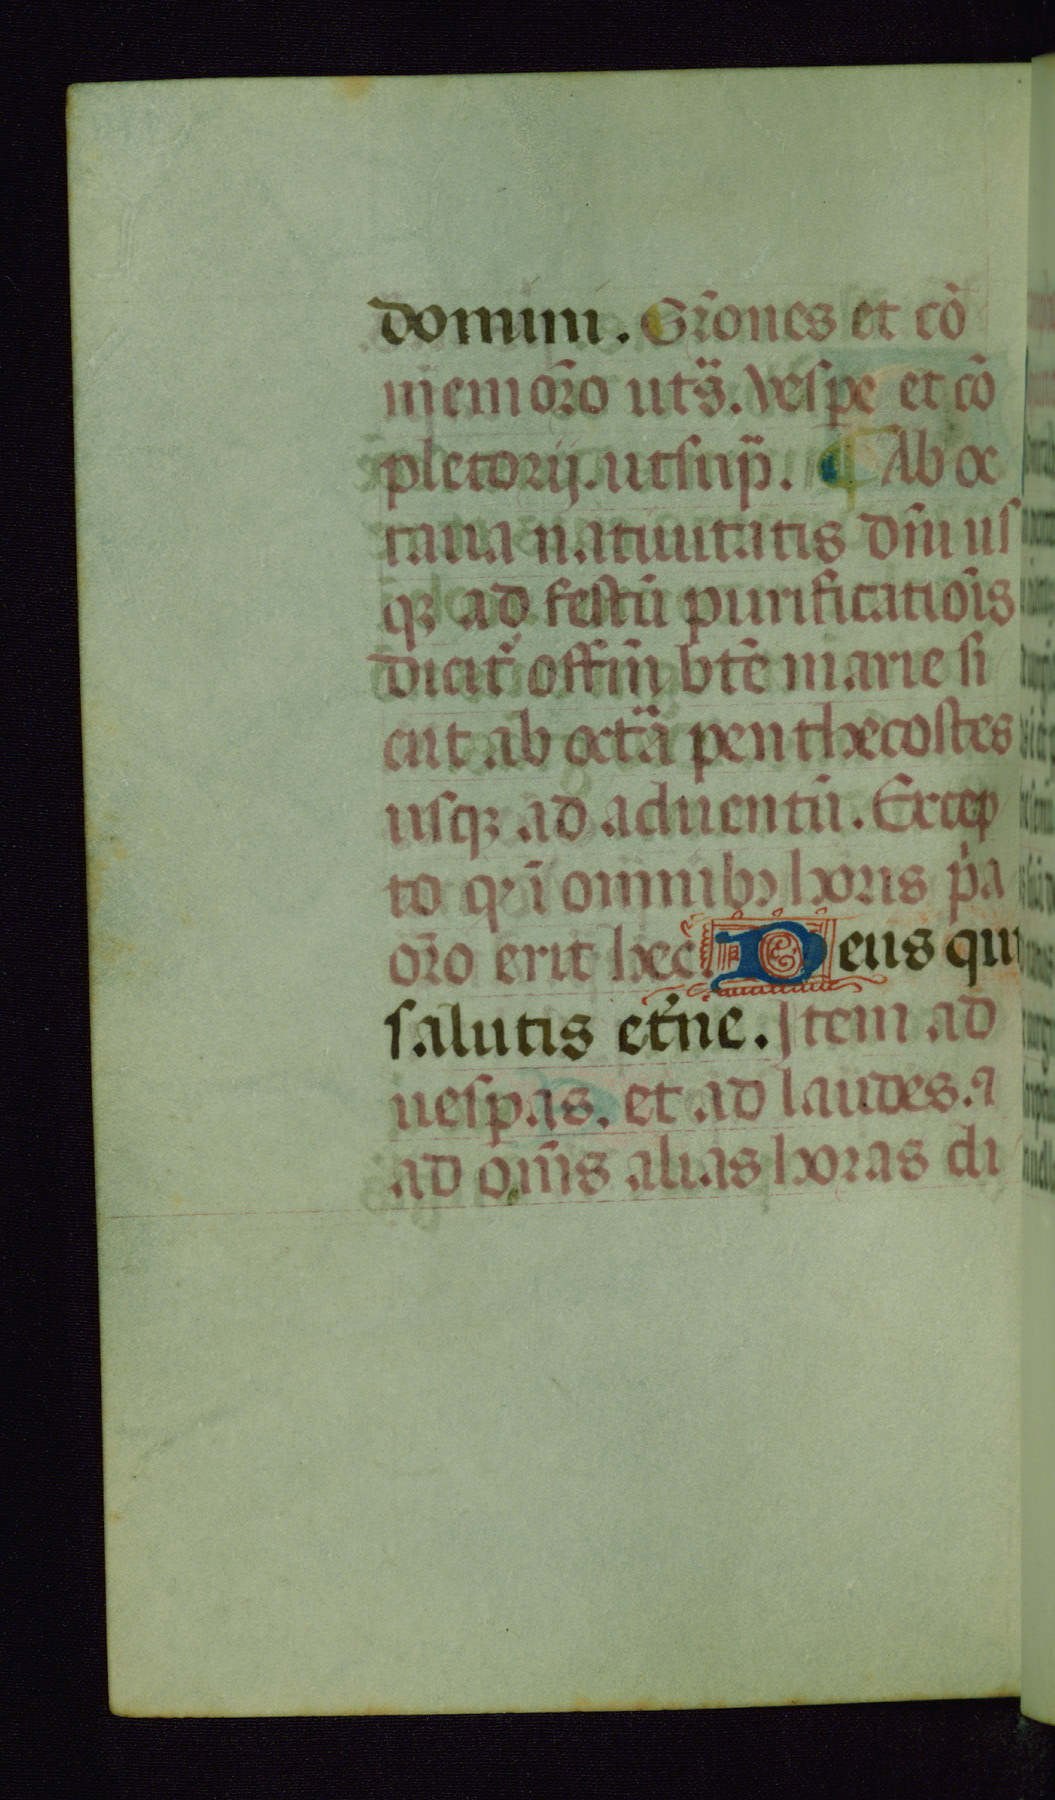 domini. Gr̄ones et cō
memor̄o ut s̄. Vespe et cō
pletorij. ut sup̄. ¶ Ab oc
taua natiuitatis dn̄i us
qꝫ ad festū purificatiōis
dicit᷑ offm̄ bt̄e marie si
cut ab octā penthecostes
usqꝫ ad aduentū. Excep
to qꝫ ī omnibꝫ horis p̄a
or̄o erit hec Deus qui
salutis et̄ne. Item ad
uesp̲as. et ad laudes. ⁊
ad om̄s alias horas di